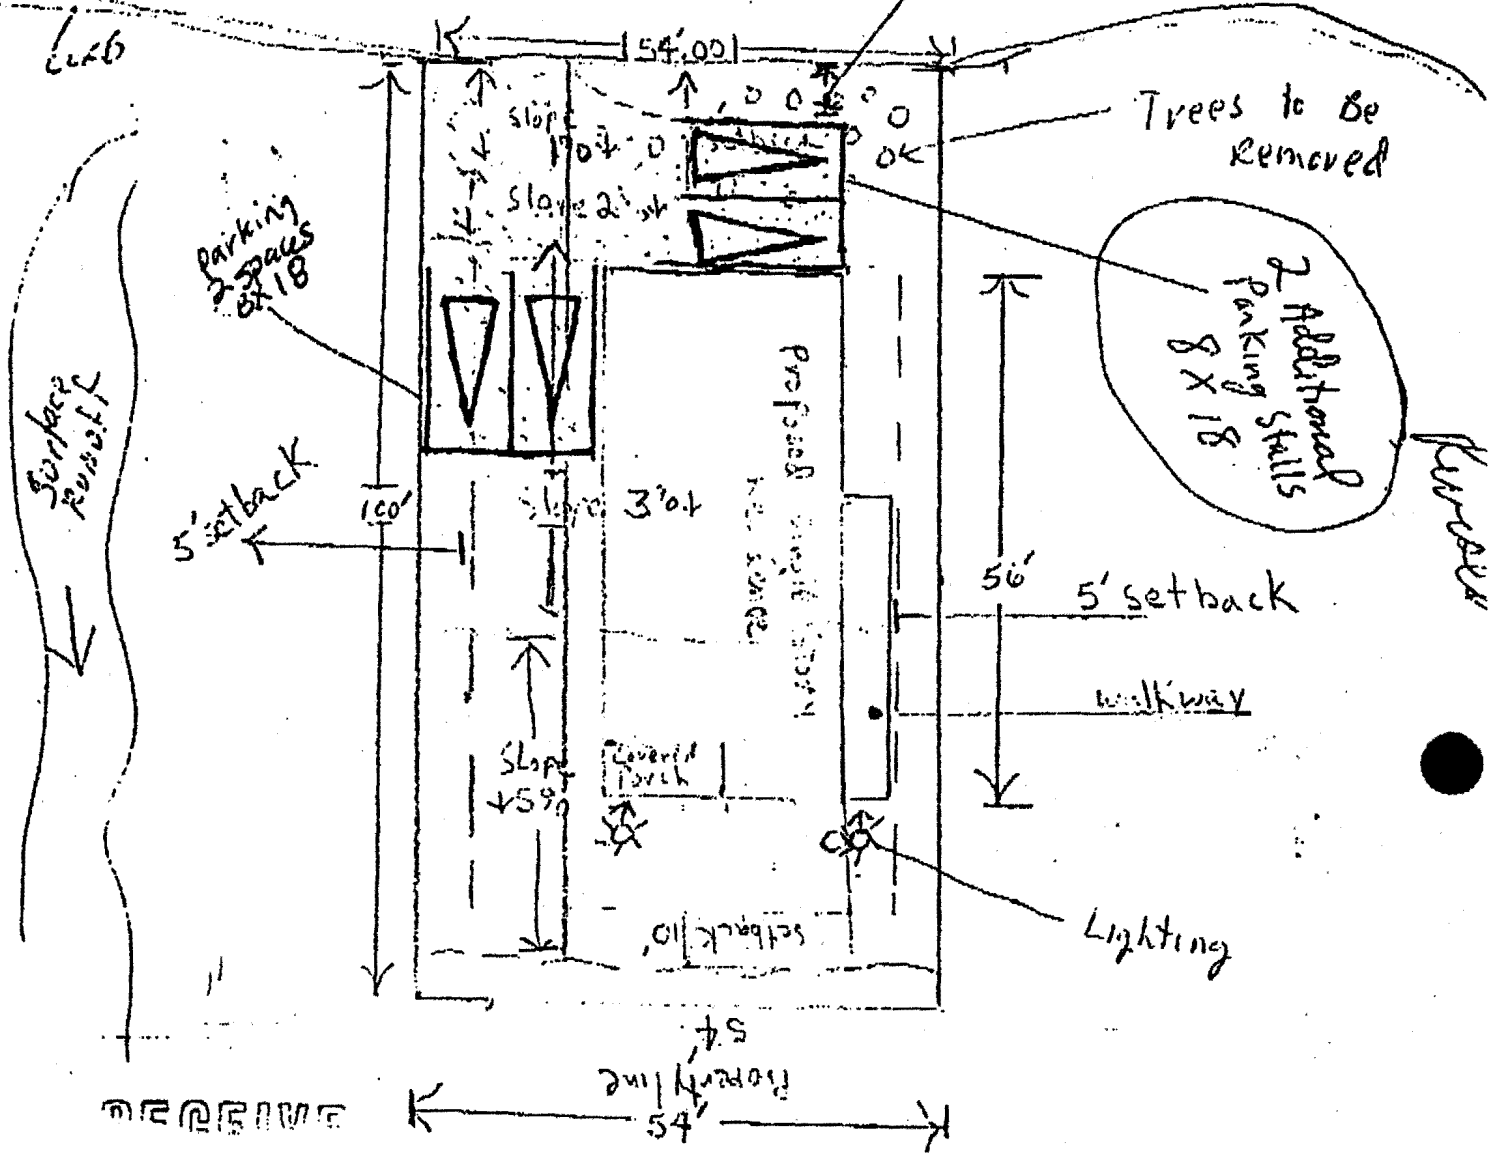 curb
54'.00
Trees to Be
Removed
slope
setback
Slope 2%
parking
2 spaces
8X18
2 Additional
Parking Stalls
8 X 18
Surface
Runoff
5' setback
100'
Slope 3%
Proposed single
56'
5' setback
walkway
Slope
5%
Covered
Porch
Lighting
setback 10'
54'
Property line
54'
RECEIVE